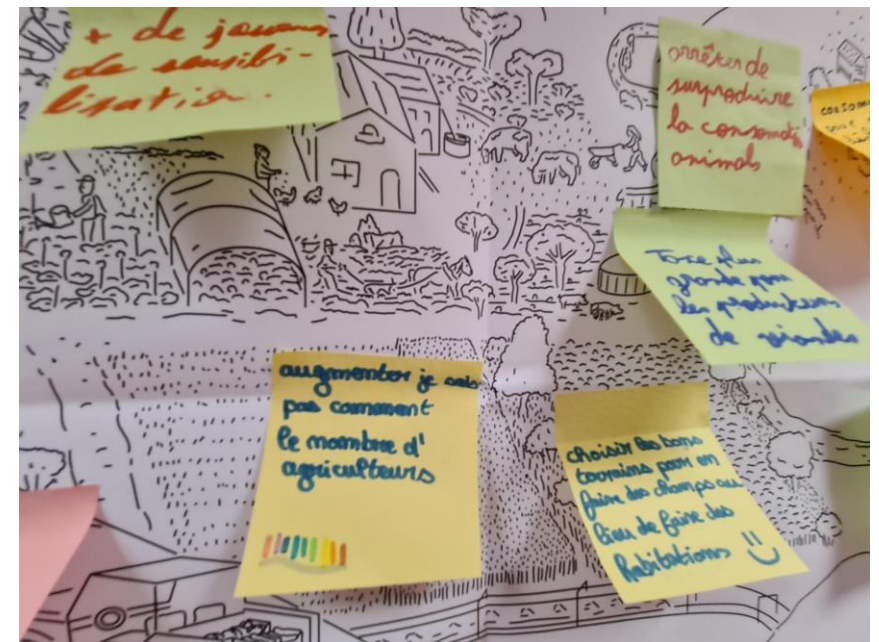 + de jours
de sensibi-
lisation.
arrêter de
surproduire
la consomati
animals
consomm
Taxe plus
grande pour
les producteurs
de viandes
augmenter je sais
pas comment
le nombre d'
agriculteurs
choisir les bons
terrains pour en
faire des champs au
lieu de faire des
habitations